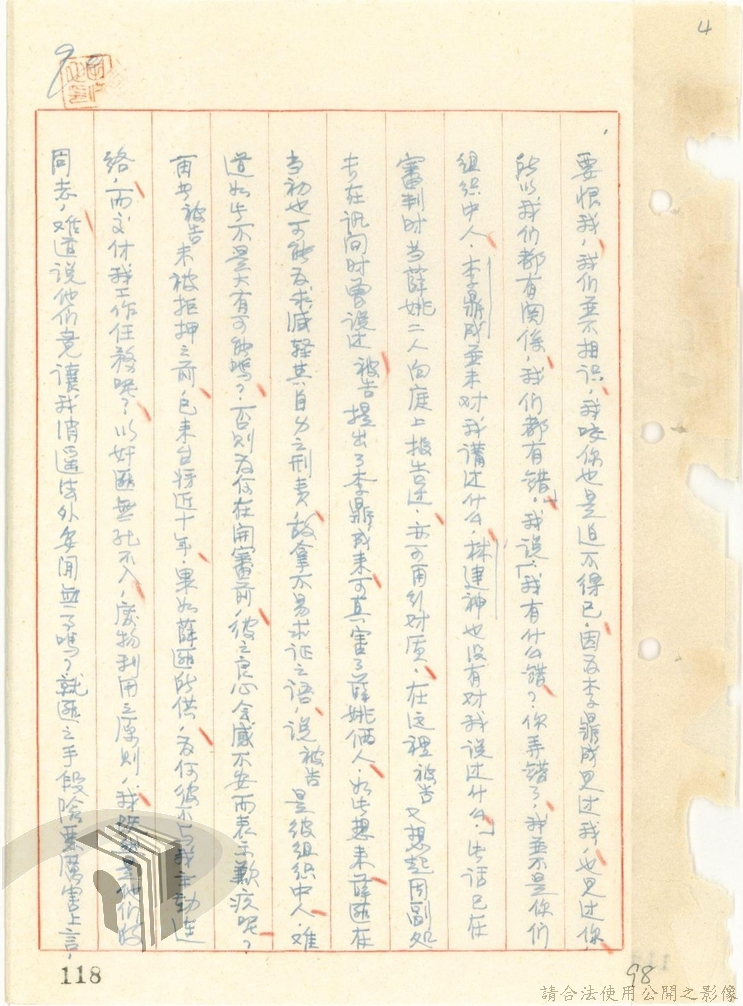 4
要恨我,我们並不相识,我咬你也是迫不得已,因為李鼎成見过我,也見过你,
所以我们都有関係,我们都有錯。我说「我有什么錯?你弄錯了,我並不是你们
组织中人,李鼎成並未对我講过什么,林建神也没有对我说过什么。」此话已在
審判时当薛姚二人向庭上报告过,亦可再行对质。在这裡被告又想起周副处
長在讯问时曾说过被告提出了李鼎成来可真害了薛姚俩人,如此想来薛匪在
当初也可能為求減轻其自身之刑责,故拿不易求证之语,说被告是彼组织中人,难
道如此不是大有可能嗎?否则為何在開審前,彼之良心会感不安而表示歉疚呢?
再者被告未被拒押之前,已来台将近十年,果如薛匪所供,為何彼不与我主动連
络,而交付我工作任務呢?以奸匪無孔不入,廢物利用之原则,我既然是他们的
同志,难道说他们竟讓我逍遥法外安閒無事嗎?就匪之手段陰森厲害上言,
118
98
請合法使用公開之影像